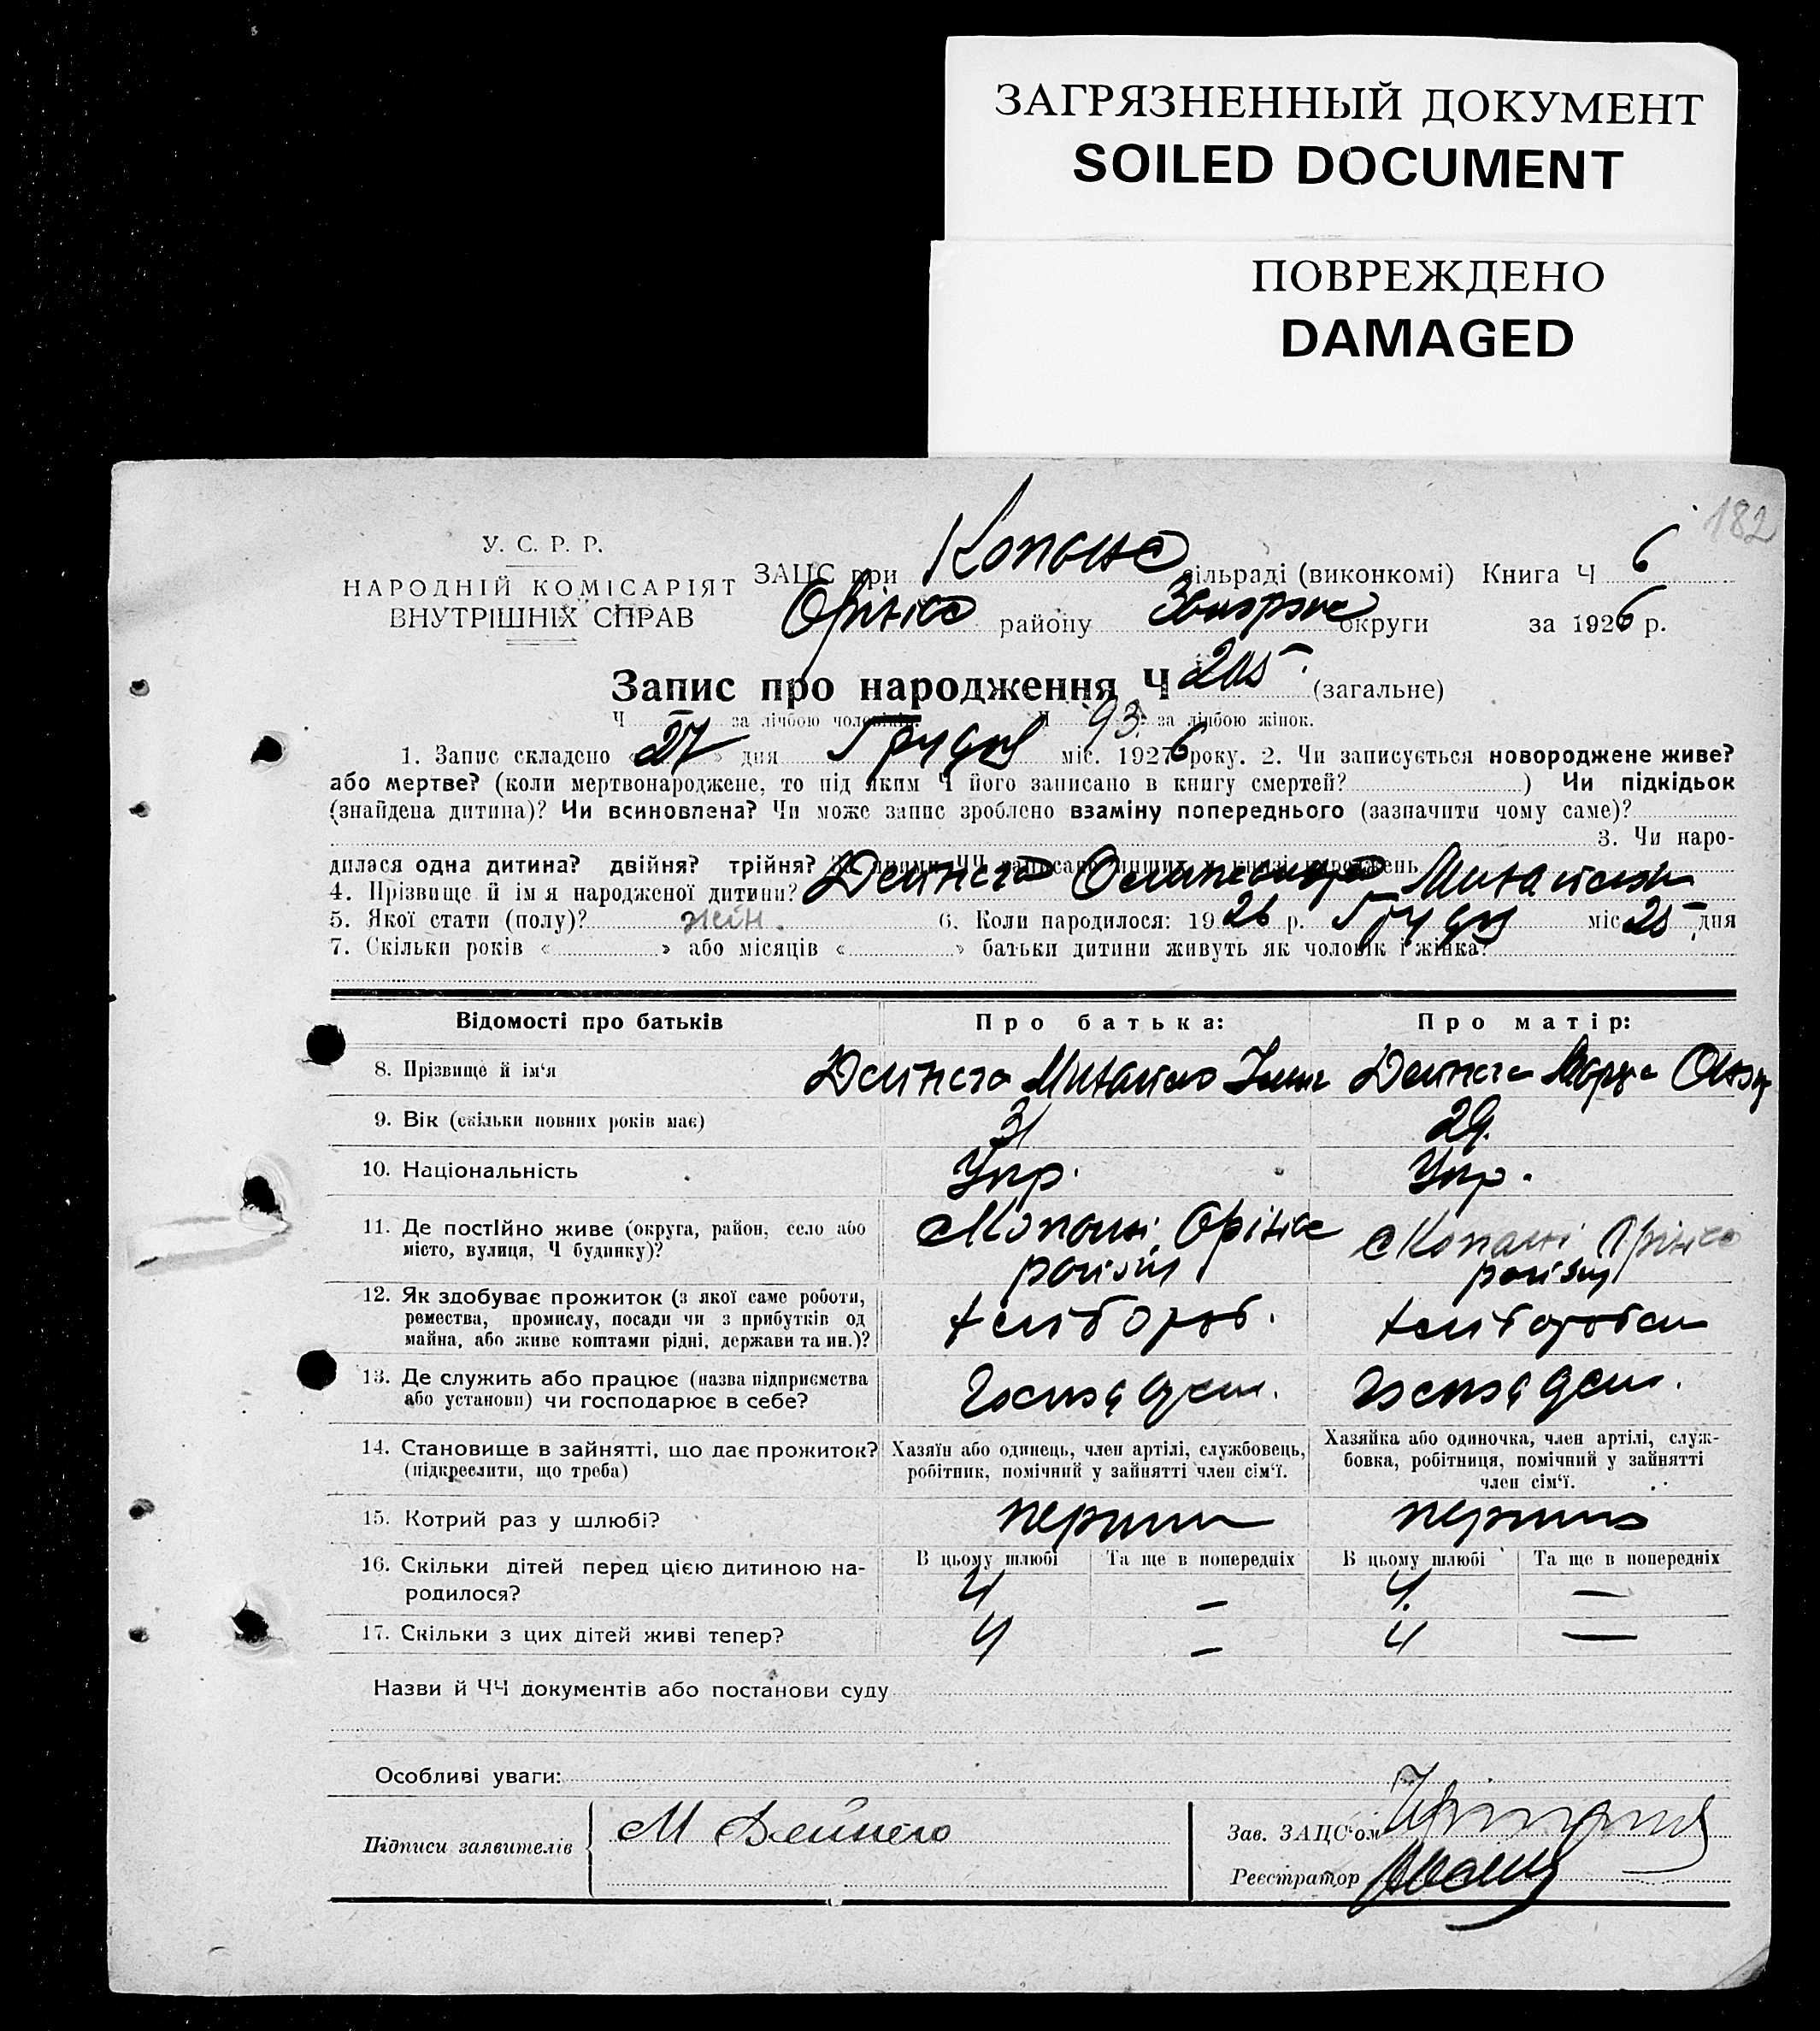 ЗАГРЯЗНЕННЫЙ ДОКУМЕНТ
SOILED DOCUMENT
ПОВРЕЖДЕНО
DAMAGED
182
У. С. Р. Р.
НАРОДНІЙ КОМІСАРІЯТ
ВНУТРІШНІХ СПРАВ
ЗАЦС при сільраді (виконкомі) Книга Ч 6
району округи за 1926 р.
Запис про народження Ч 205 (загальне)
Ч за лічбою чоловіків. Ч 93 за лічбою жінок.
1. Запис складено « 27 » дня Грудня міс. 1926 року. 2. Чи записується новороджене живе?
або мертве? (коли мертвонароджене, то під яким Ч його записано в книгу смертей? ) Чи підкідьок
(знайдена дитина)? Чи всиновлена? Чи може запис зроблено взаміну попереднього (зазначити чому саме)?
3. Чи наро-
дилася одна дитина? двійня? трійня? За якими ЧЧ записано инших у книзі народжень
4. Прізвище й ім'я народженої дитини? Дейнега
5. Якої стати (полу)? жін. 6. Коли народилося: 1926 р. Грудня міс. 25 дня
7. Скільки років « » або місяців « » батьки дитини живуть як чоловік і жінка?
Відомості про батьків Про батька: Про матір:
8. Прізвище й ім'я Дейнега Михайло Дейнега
9. Вік (скільки повних років має) 31 29.
10. Національність Укр. Укр.
11. Де постійно живе (округа, район, село або
місто, вулиця, Ч будинку)?
с Копані Оріхів с Копані Оріхів
району району
12. Як здобуває прожиток (з якої саме роботи,
ремества, промислу, посади чи з прибутків од
майна, або живе коштами рідні, держави та ин.)?
хлібороб. хлібороб
13. Де служить або працює (назва підприємства
або установи) чи господарює в себе?
14. Становище в зайнятті, що дає прожиток?
(підкреслити, що треба)
Хазяїн або одинець, член артілі, службовець,
робітник, помічний у зайнятті член сім'ї.
Хазяйка або одиночка, член артілі, служ-
бовка, робітниця, помічний у зайнятті
член сім'ї.
15. Котрий раз у шлюбі? перший перший
16. Скільки дітей перед цією дитиною на-
родилося?
В цьому шлюбі Та ще в попередніх В цьому шлюбі Та ще в попередніх
4 — 4. —
17. Скільки з цих дітей живі тепер? 4 — 4 —
Назви й ЧЧ документів або постанови суду
Особливі уваги:
Підписи заявителів М Дейнега
Зав. ЗАЦС'ом
Реєстратор